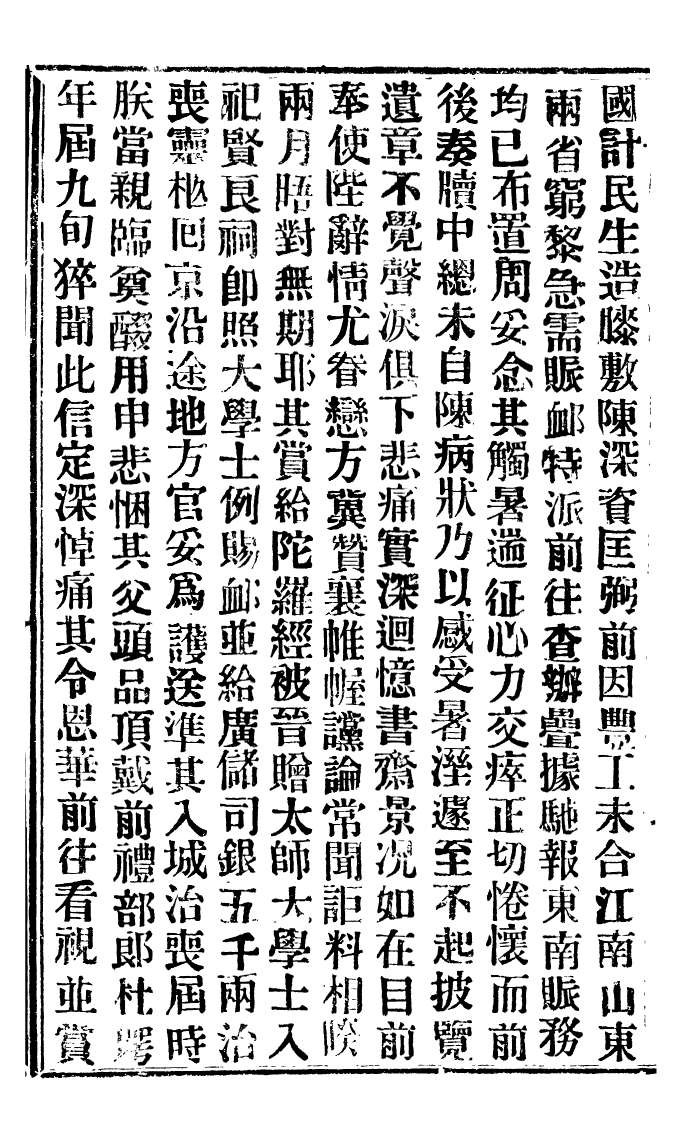 國計民生造膝敷陳深資匡弼前因豐工未合江南山東
兩省窮黎急需賑卹特派前往查辦疊據馳報東南賑務
均已布置周妥念其觸暑遄征心力交瘁正切惓懷而前
後奏牘中總未自陳病狀乃以感受暑溼遽至不起披覽
遺章不覺聲淚俱下悲痛實深迴憶書齋景況如在目前
奉使陛辭情尤眷戀方冀贊襄帷幄讜論常聞詎料相暌
兩月晤對無期耶其賞給陀羅經被晉贈太師大學士入
祀賢良祠卽照大學士例賜卹並給廣儲司銀五千兩治
喪靈柩回京沿途地方官妥爲護送準其入城治喪屆時
朕當親臨奠醊用申悲悃其父頭品頂戴前禮部郎杜堮
年屆九旬猝聞此信定深悼痛其令恩華前往看視並賞